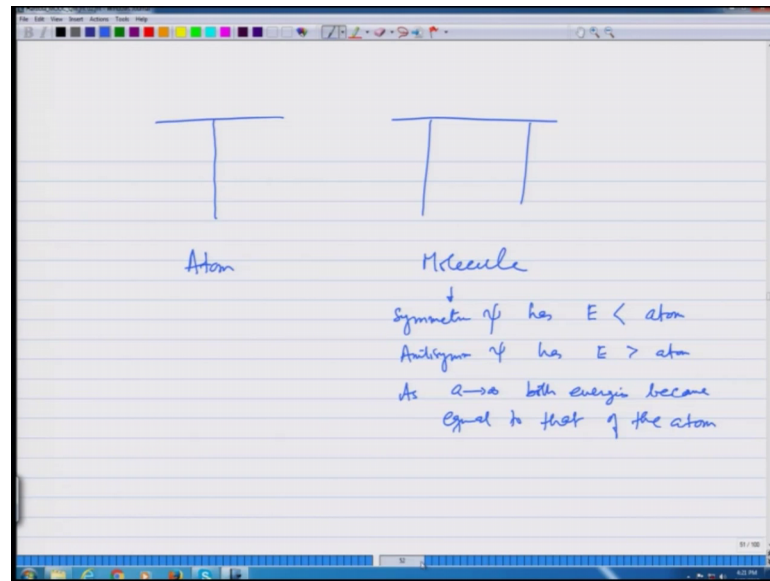 File Edit View Insert Actions Tools Help
B /
Atom
Molecule
Symmetric ψ has E < atom
Antisymm ψ has E > atom
As a→∞ both energies become
equal to that of the atom
51 / 100
52
4:21 PM